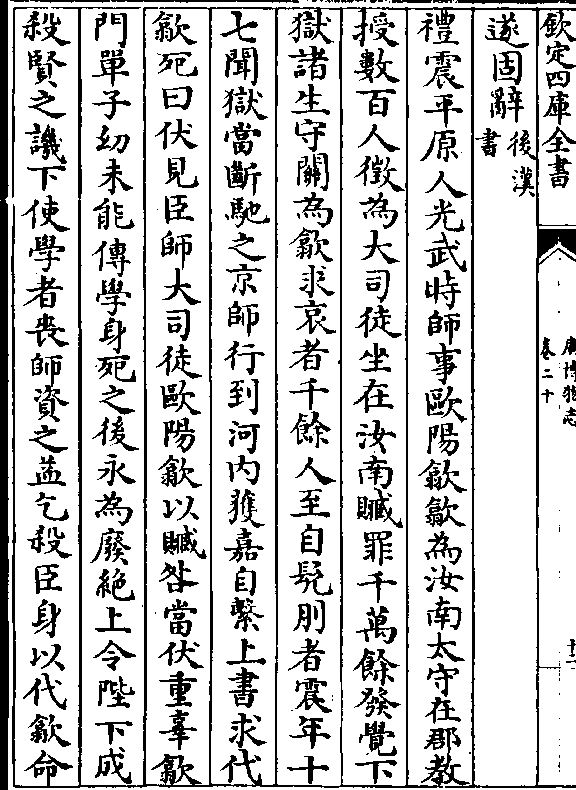 欽定四庫全書
廣博物志
卷二十
十二
遂固辭後漢書
禮震平原人光武時師事歐陽歙歙為汝南太守在郡教
授數百人徵為大司徒坐在汝南贓罪千萬餘發覺下
獄諸生守闕為歙求哀者千餘人至自髡刖者震年十
七聞獄當斷馳之京師行到河內獲嘉自繫上書求代
歙死曰伏見臣師大司徒歐陽歙以贓咎當伏重辜歙
門單子幼未能傳學身死之後永為廢絶上令陛下成
殺賢之譏下使學者喪師資之益乞殺臣身以代歙命